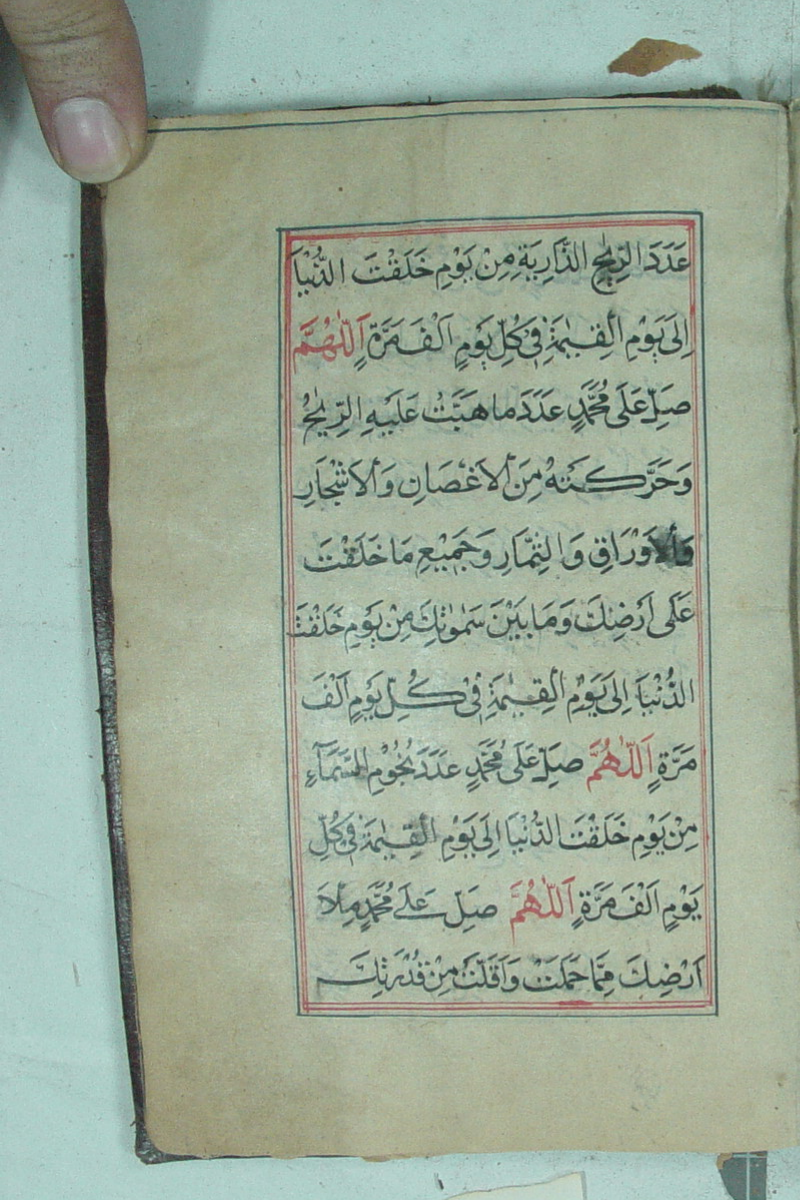 عَدَدَ الرِّيٰحِ الذَّارِيَةِ مِنْ يَوْمِ خَلَقْتَ الدُّنْيَا
اِلٰى يَوْمِ الْقِيٰمَةِ فِيْ كُلِّ يَوْمٍ اَلْفَ مَرَّةٍ اَللّٰهُمَّ
صَلِّ عَلٰى مُحَمَّدٍ عَدَدَ ما هَبَّتْ عَلَيْهِ الرِّيٰحُ
وَحَرَّكَتْهُ مِنَ الْاَغْصَانِ وَالْاَشْجَارِ
وَالْاَوْرَاقِ وَالثِّمَارِ وَجَمِيْعِ مَا خَلَقْتَ
عَلٰى اَرْضِكَ وَمَا بَيْنَ سَمٰوٰتِكَ مِنْ يَوْمِ خَلَقْتَ
الدُّنْيَا اِلٰى يَوْمِ الْقِيٰمَةِ فِيْ كُلِّ يَوْمٍ اَلْفَ
مَرَّةٍ اَللّٰهُمَّ صَلِّ عَلٰى مُحَمَّدٍ عَدَدَ نُجُوْمِ السَّمَآءِ
مِنْ يَوْمِ خَلَقْتَ الدُّنْيَا اِلٰى يَوْمِ الْقِيٰمَةِ فِيْ كُلِّ
يَوْمٍ اَلْفَ مَرَّةٍ اَللّٰهُمَّ صَلِّ عَلٰى مُحَمَّدٍ مِلْاَ
اَرْضِكَ مِمَّا حَمَلَتْ وَاَقَلَّتْ مِنْ قُدْرَتِكَ